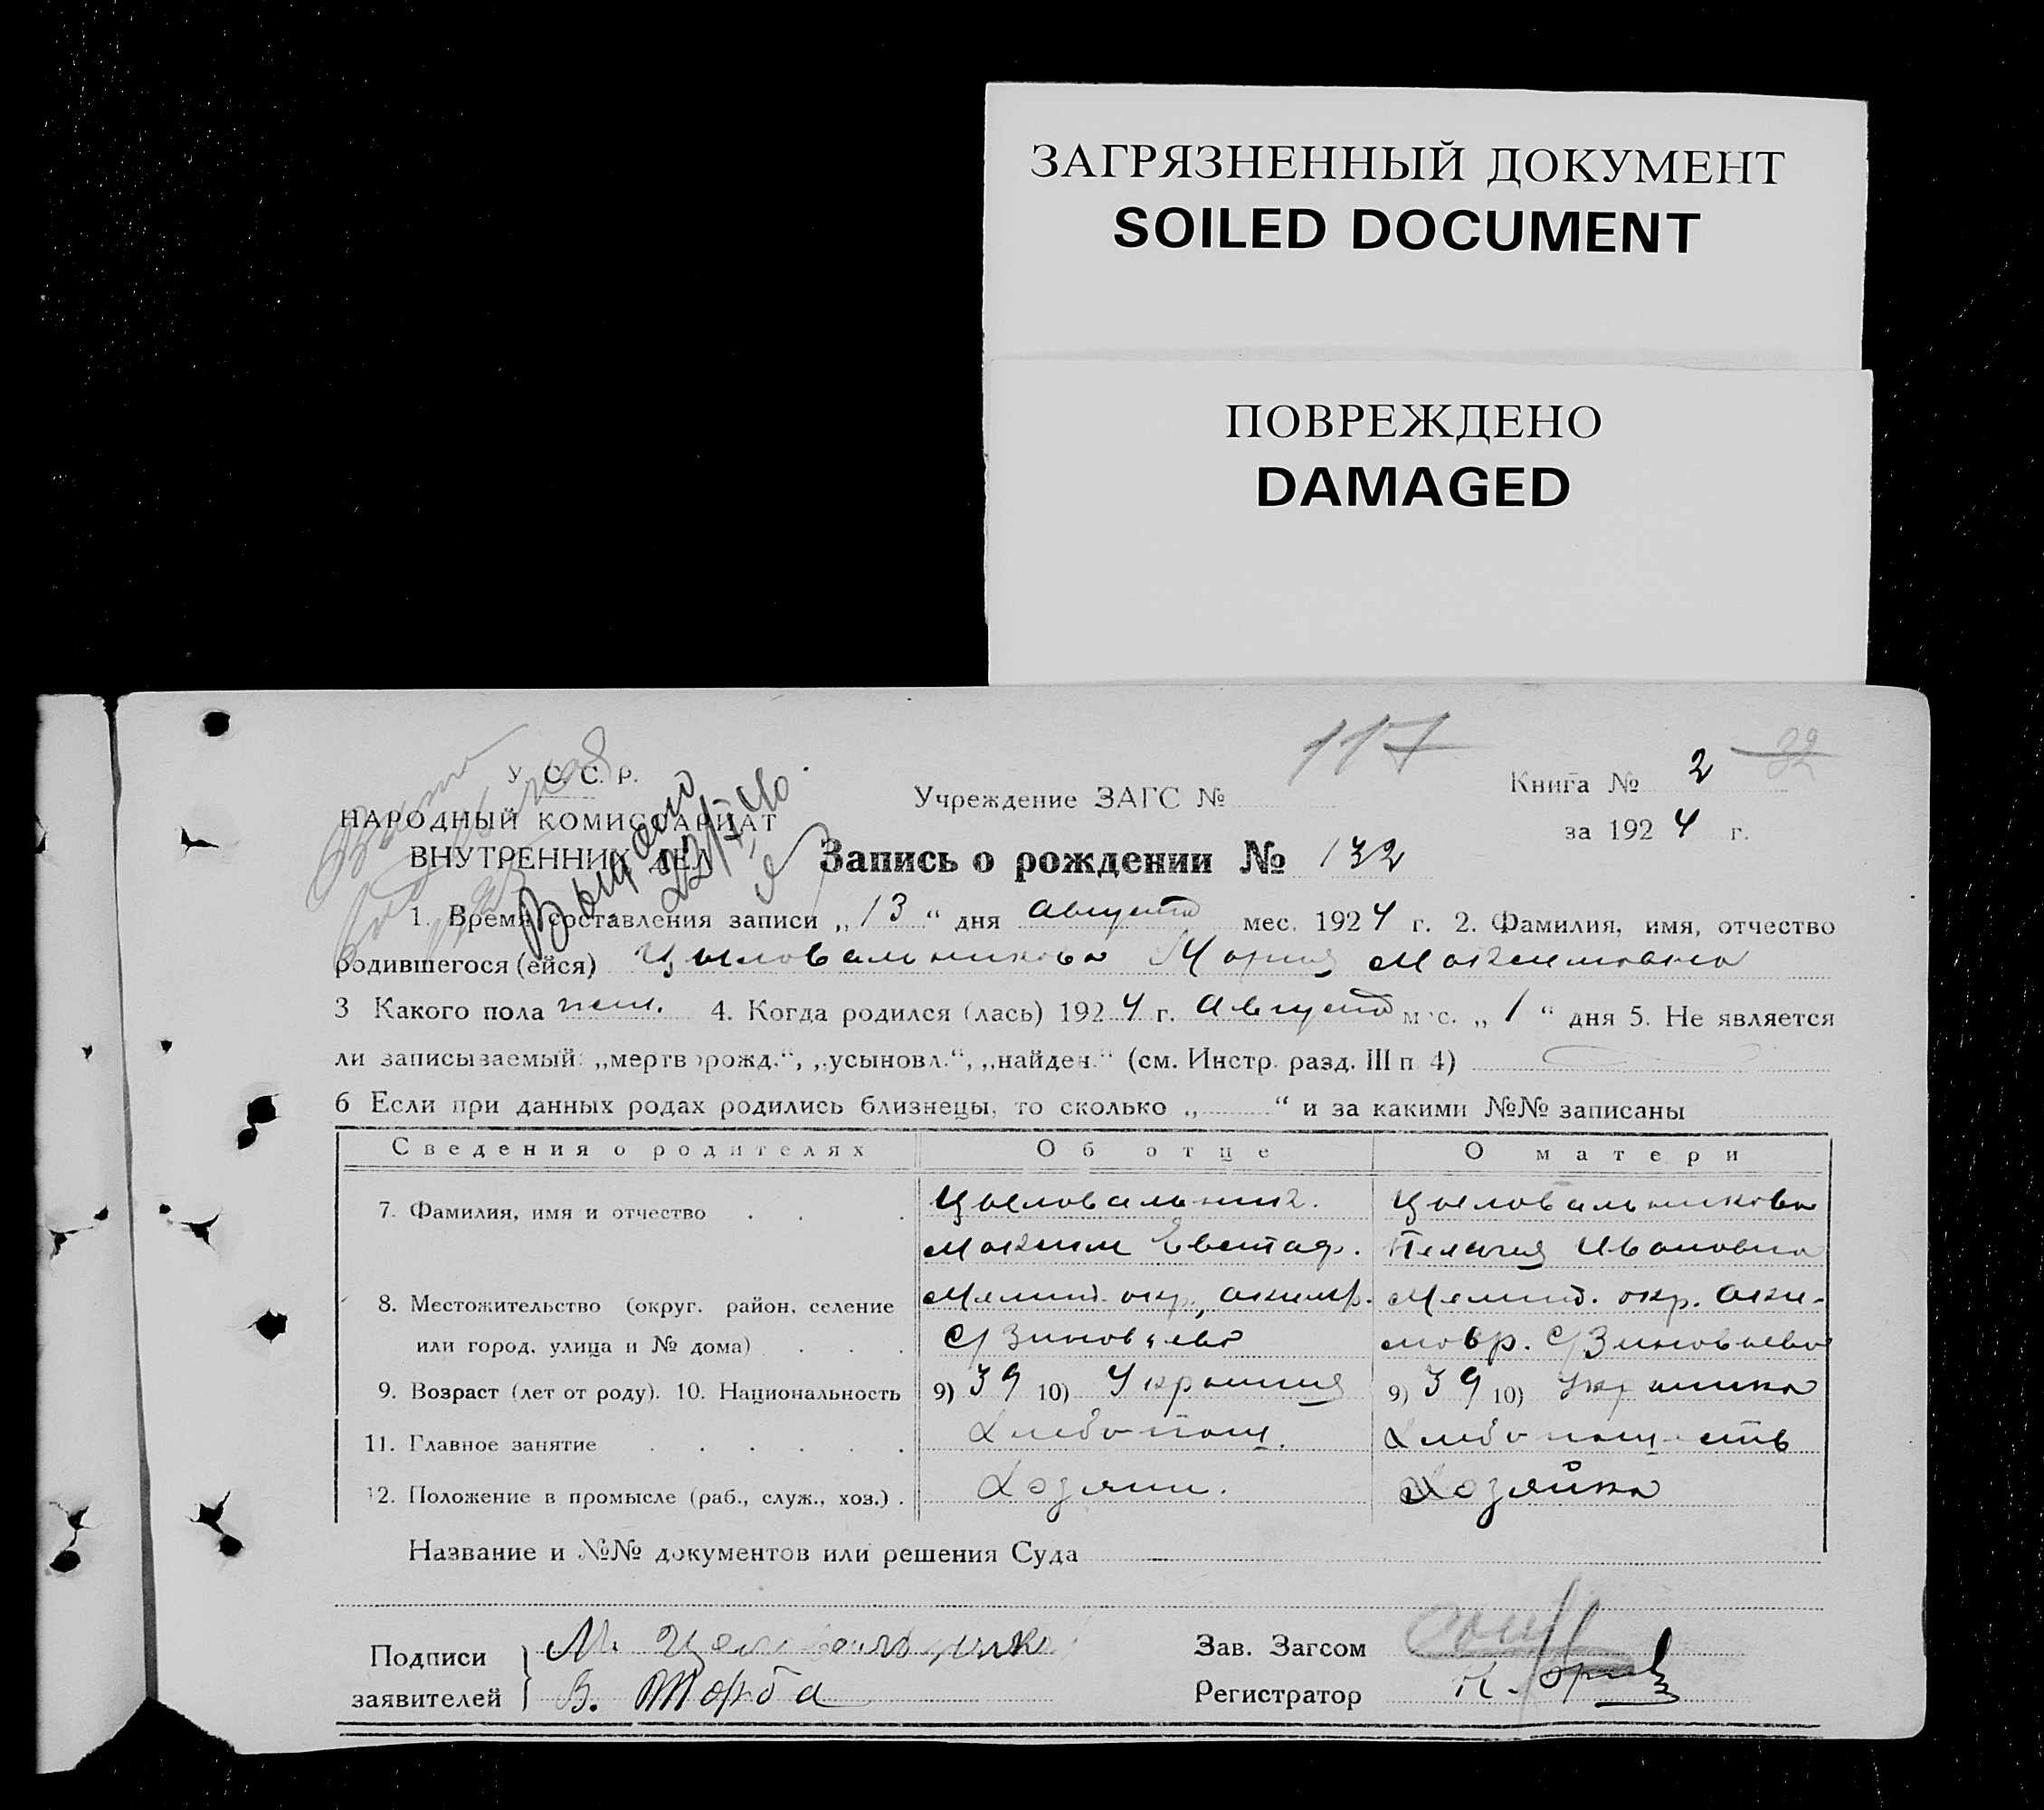 ЗАГРЯЗНЕННЫЙ ДОКУМЕНТ
SOILED DOCUMENT
ПОВРЕЖДЕНО
DAMAGED
117
У. С. С. Р.
НАРОДНЫЙ КОМИССАРИАТ
ВНУТРЕННИХ ДЕЛ
Выдано
Учреждение ЗАГС №
Книга № 2 32
за 1924 г.
Запись о рождении № 132
1. Время составления записи „13“ дня августа мес. 1924 г. 2. Фамилия, имя, отчество
родившегося (ейся) Цыловальникова Мария Максимовна
3 Какого пола жен. 4. Когда родился (лась) 1924 г. Августа мес. „1“ дня 5. Не является
ли записываемый: „мертворожд.“, „усыновл.“, „найден.“ (см. Инстр. разд. III п 4)
6 Если при данных родах родились близнецы, то сколько „ “ и за какими №№ записаны
Сведения о родителях Об отце О матери
7. Фамилия, имя и отчество Цыловальник. Цыловальникова
Максим Евстаф. Пелагия Ивановна
8. Местожительство (округ. район, селение Мелит. окр., акимр. Мелит. окр. Аки-
или город, улица и № дома) с/Зиновьево мовр. с/Зиновьево
9. Возраст (лет от роду). 10. Национальность 9) 39 10) 9) 39 10)
11. Главное занятие Хлебопаш.
12. Положение в промысле (раб., служ., хоз.) Хозяин. Хозяйка
Название и №№ документов или решения Суда
Подписи М. Целовальник Зав. Загсом
заявителей В. Торба Регистратор